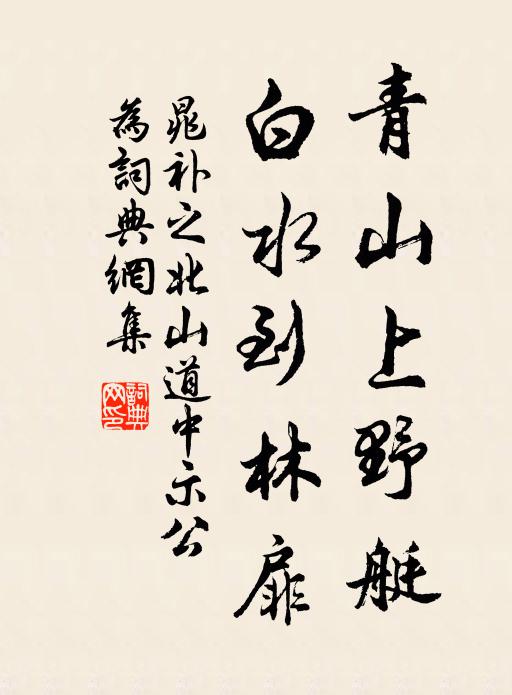 青山上野艇
白水到林扉
晁补之北山道中示公
為詞典網集
詞典網印